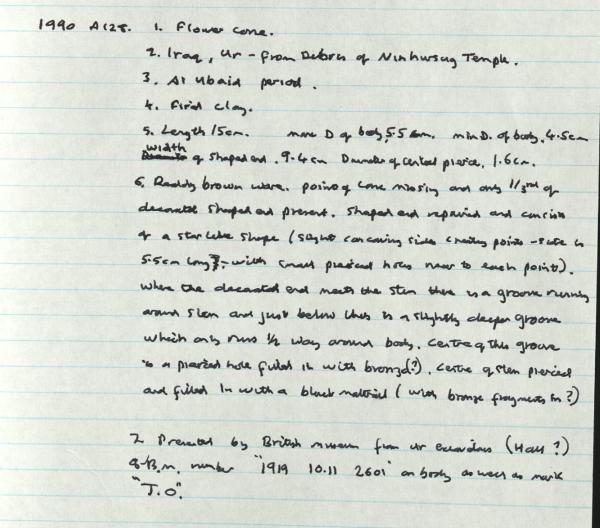 1990 A128. 1. Flower cone.
2. Iraq, Ur - from Debris of Ninhursag Temple.
3. Al Ubaid period.
4. Fired Clay.
5. Length 15cm. max D of body 5.5cm. min D. of body. 4.5cm
width of shaped end. 9.4cm Diameter of central pierce. 1.6cm.
6. Reddy brown ware. point of cone missing and only 1/3rd of
decorated shaped end present. Shaped end repaired and consists
of a star like shape (slight concaving sides creating points - side is
5.5cm long?. with small pierced holes near to each point).
Where the decorated end meets the stem there is a groove running
around stem and just below this is a slightly deeper groove
which only runs 1/2 way around body. Centre of this groove
is a pierced hole filled in with bronze(?). Centre of stem pierced
and filled in with a black material (with bronze fragments in?)
7. Presented by British museum from Ur excavations (Hall?)
8. B.m. number "1919 10.11 2601" on body as well as mark
"T.O".